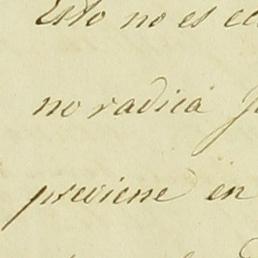 Esto no es
no radica
previene en